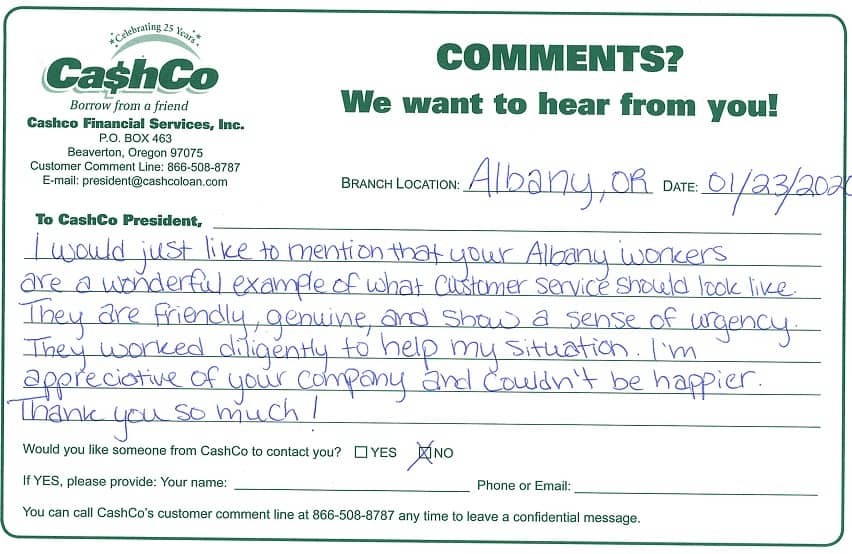 Celebrating 25 Years
Ca$hCo
Borrow from a friend
Cashco Financial Services, Inc.
P.O. BOX 463
Beaverton, Oregon 97075
Customer Comment Line: 866-508-8787
E-mail: president@cashcoloan.com
COMMENTS?
We want to hear from you!
BRANCH LOCATION: Albany, OR DATE: 01/23/2020
To CashCo President,
I would just like to mention that your Albany workers
are a wonderful example of what customer service should look like.
They are friendly, genuine, and show a sense of urgency.
They worked diligently to help my situation. I'm
appreciative of your company and couldn't be happier.
Thank you so much!
Would you like someone from CashCo to contact you? YES NO
If YES, please provide: Your name: Phone or Email:
You can call CashCo's customer comment line at 866-508-8787 any time to leave a confidential message.